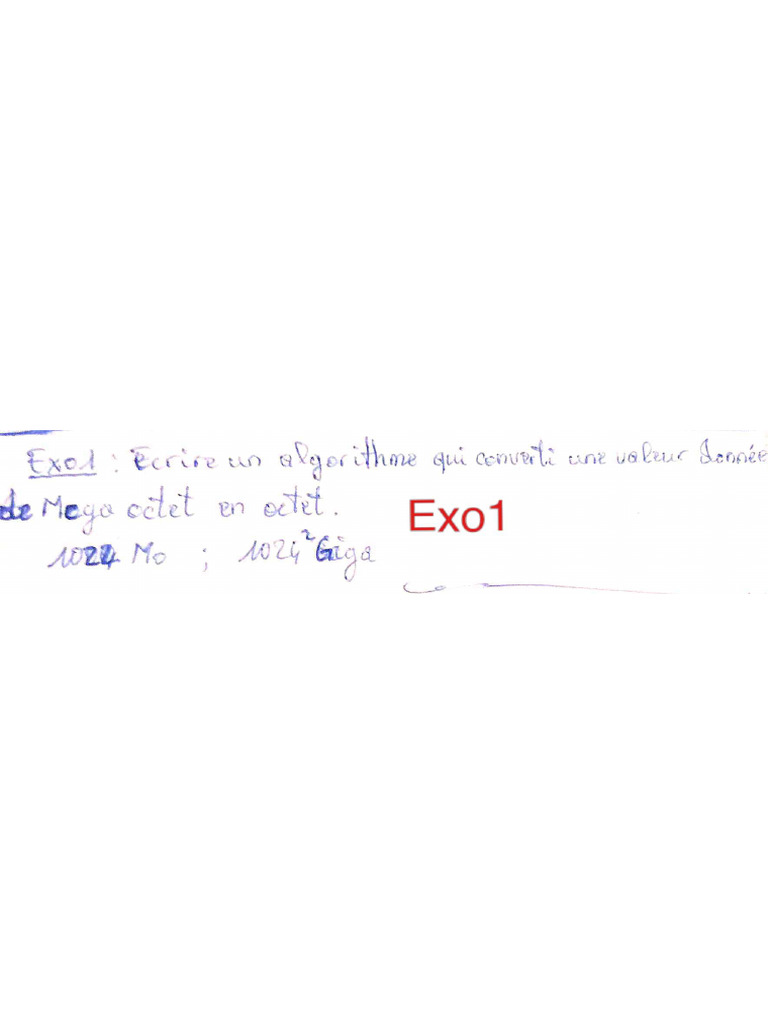 Exo1 : Ecrire un algorithme qui converti une valeur donnée
de Mega octet en octet.
Exo1
1024 Mo ; 1024² Giga